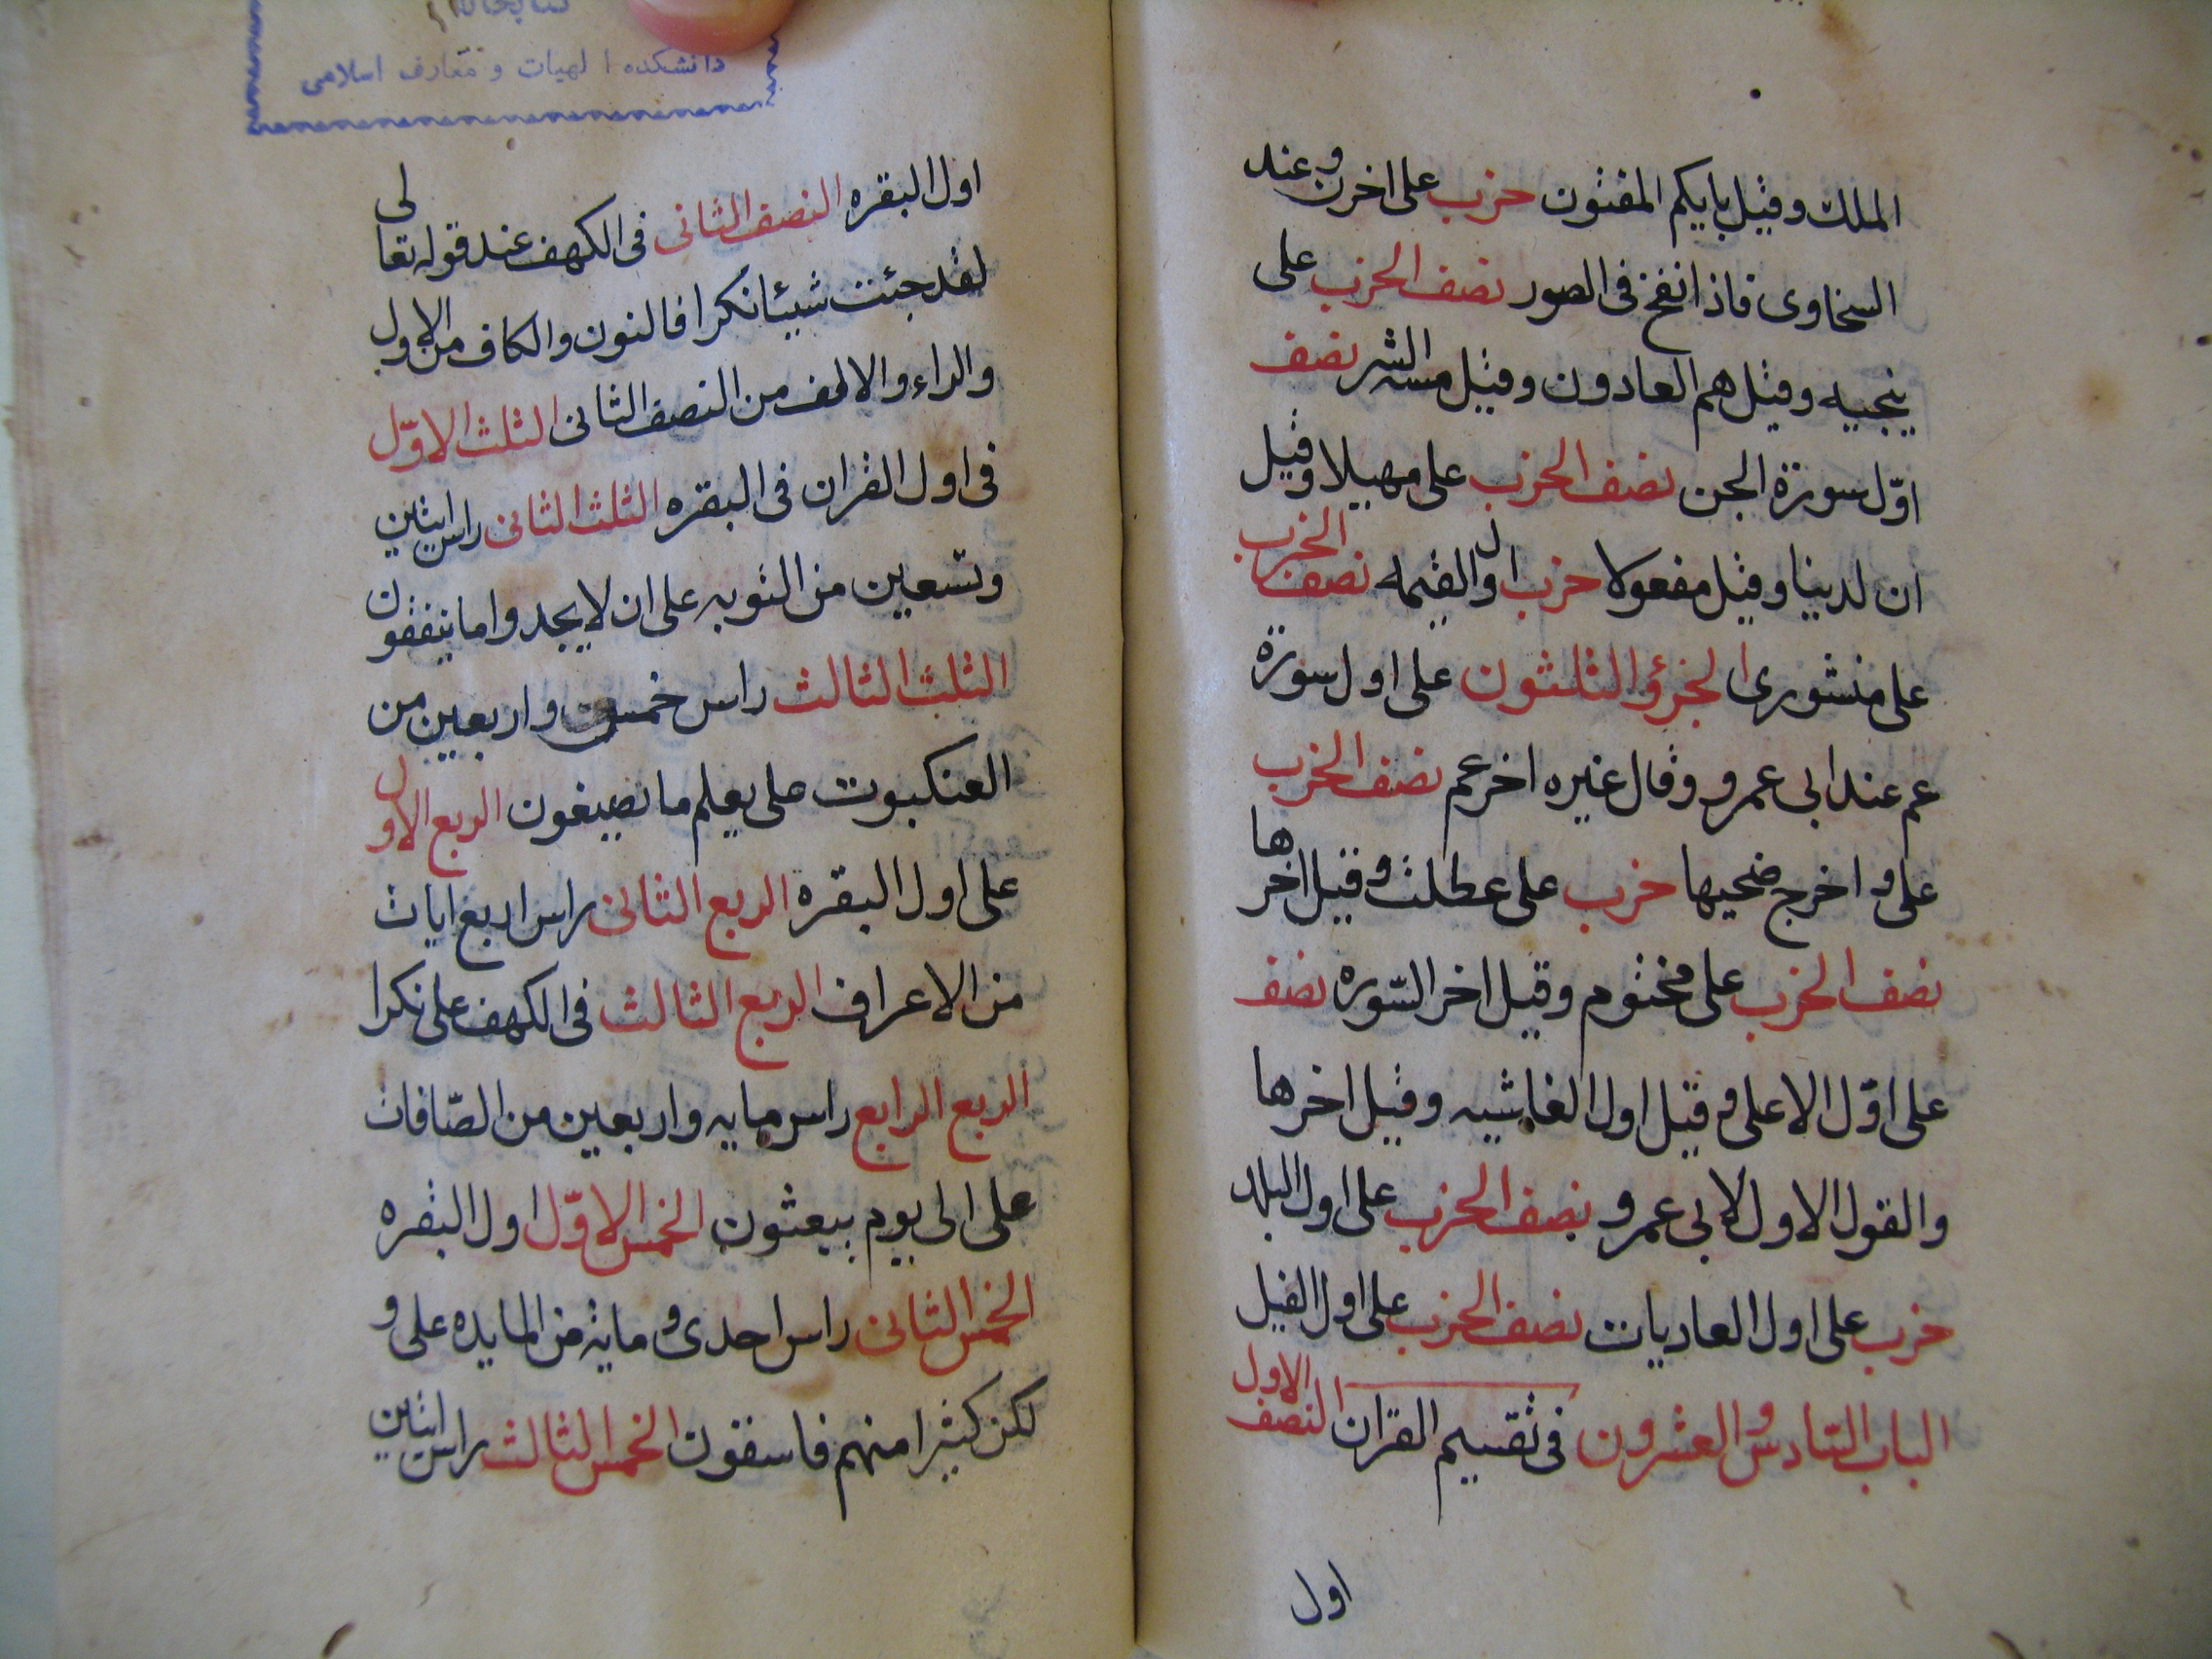 الملك وقيل بايكم المفتون حزب على اخرن وعند
السخاوى فاذا نفخ فى الصور نصف الحزب على
ينجيه وقيل هم العادون وقيل مسه الشر نصف
اوّل سورة الجن نصف الحزب على مهيلا وقيل
ان لدينا وقيل مفعولا حزب اول القيمه نصف الحزب
على منثورى الجزؤ الثلثون على اول سورة
عم عند ابى عمرو وقال غيره اخر عم نصف الحزب
على و اخرج ضحيها حزب على عطلت وقيل اخرها
نصف الحزب على مختوم وقيل اخر السّوره نصف
على اوّل الاعلى و قيل اول الغاشيه وقيل اخرها
والقول الاول لابى عمرو نصف الحزب على اول البلد
حزب على اول العاديات نصف الحزب على اول الفيل
الباب السّادس والعشرون فى تقسيم القران النصف الاول
اول
دانشكده الهيات و معارف اسلامى
اول البقره النصف الثانى فى الكهف عند قوله تعالى
لقد جئت شيئا نكرا فالنون والكاف من الاول
والراء والالف من النصف الثانى الثلث الاوّل
فى اول القران فى البقره الثلث الثانى راس اثنين
وتسعين من التوبه على ان لا يجدوا ما ينفقون
الثلث الثالث راس خمس واربعين من
العنكبوت على يعلم ما تصيغون الربع الاول
على اول البقره الربع الثانى راس اربع ايات
من الاعراف الربع الثالث فى الكهف على نكرا
الربع الرابع راس مايه واربعين من الصّافات
على الى يوم يبعثون الخمس الاوّل اول البقره
الخمس الثانى راس احدى و ماية من المايده على و
لكن كثيرا منهم فاسقون الخمس الثالث راس اثنين